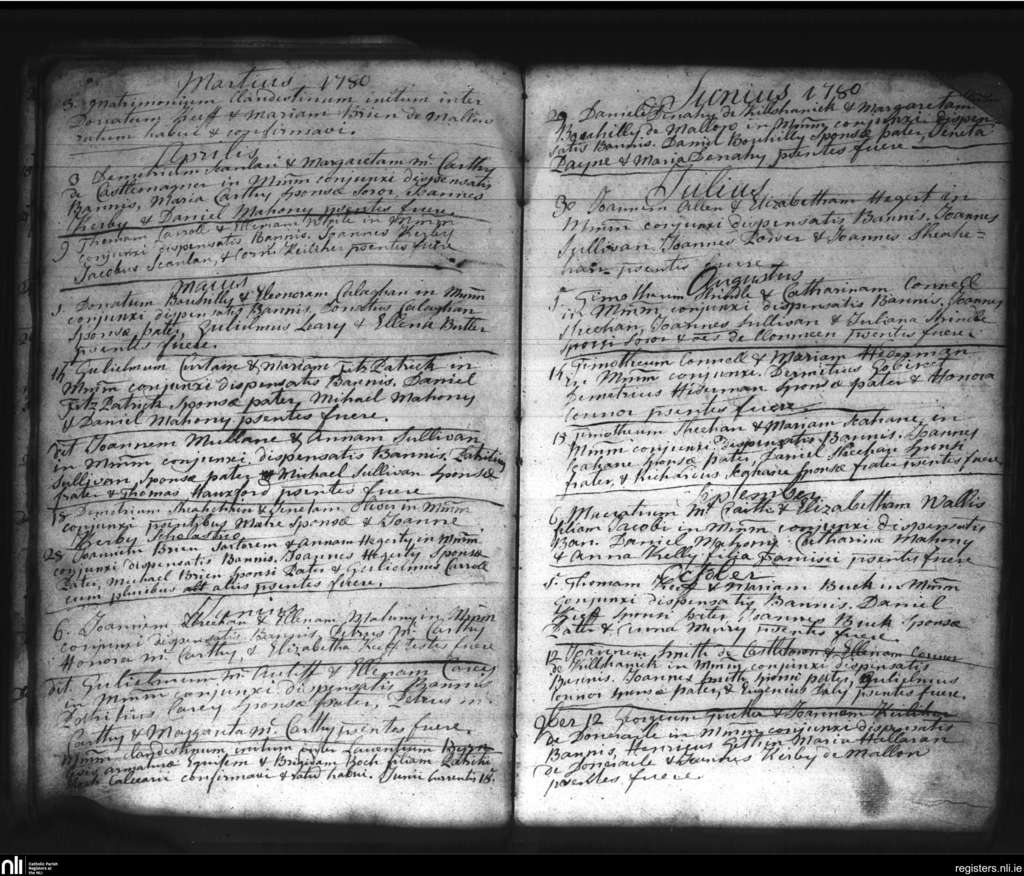 Martius 1780
3. Matrimonium Clandestinum initum inter
Donatum Keeff & Mariam Brien de Mallow
ratum habui & confirmavi.
Aprilis
3 Demetrium Scanlan & Margaretam Mc Carthy
de Castlemagner in Mmm conjunxi dispensatis
Bannis, Maria Carthy Sponsæ Soror Joannes
Kerby & Daniel Mahony psentes fuere.
9 Thomam Carroll & Elenam White in Mmm
conjunxi dispensatis Bannis. Joannes Kerby
Jacobus Scanlan, & Corn: Keliher psentes fuere
Maius
1. Donatum Bauhilly & Eleonoram Calaghan in Mmm
conjunxi dispensatis Bannis. Donatus Calaghan
Sponsæ pater, Gulielmus Leary & Ellena Butler
psentes fuere.
14 Gulielmum Curtaine & Mariam Fitz Patrick in
Mmm conjunxi dispensatis Bannis. Daniel
Fitz Patrick Sponsæ pater, Mihail Mahony
& Daniel Mahony psentes fuere.
Dit Joannem Mullane & Annam Sullivan
in Mmm conjunxi dispensatis Bannis. Patritius
Sullivan Sponsæ pater & Michael Sullivan Sponsæ
frater & Thomas psentes fuere
Demetrium & in Mmm
conjunxi psentibus Matre Sponsæ & Joanne
Kerby Scholastico
28 Joannem Brien Sartorem & Annam Hegerty in Mmm
conjunxi dispensatis Bannis. Joannes Hegerty Sponsæ
Pater, Michael Brien Sponsi Pater & Gulielmus Carroll
cum pluribus aliis psentes fuere.
Junius
6. Joannem Sheehan & Ellenam Mahony in Mmm
conjunxi dispensatis Bannis, Petrus Mc Carthy
Honora Mc Carthy, & Elizabetha Keeff testes fuere
dit. Gulielmum Mc Auliff & Ellenam Carey
in Mmm conjunxi dispensatis Bannis
Patritius Carey Sponsæ pater, Petrus Mc
Carthy & Margarita Mc Carthy psentes fuere.
Mmm clandestinum initum inter Laurentium Byrn
armaturæ Equitem & Brigidam Roch filiam Patritii
Roch Calcearii confirmavi & ratum habui. Junii currentis 18.
Junius 1780
29 Danielem Denahy de Killshanick & Margaretam
Bouhilly de Mallow in Mmm conjunxi dispen
satis Bannis. Daniel Bouhilly Sponsæ pater, Joneta
Payne & Maria Denahy psentes fuere
Julius
30 Joannem Allen & Elizabetham Hegert in
Mmm conjunxi dispensatis Bannis. Joannes
Sullivan, Joannes Power & Joannes Sheahe=
han psentes fuere
Augustus
5. Timotheum Shindle & Catharinam Connell
in Mmm conjunxi dispensatis Bannis. Joannes
Sheehan, Joannes Sullivan & Juliana Shindle
Sponsi Soror & de Clonmeen psentes fuere
14 Timotheum Connell & Mariam Hideman
in Mmm conjunxi. Demetrius
Demetrius Hideman Sponsæ pater & Honora
Connor psentes fuere
13 Timotheum Sheehan & Mariam Keahane in
Mmm conjunxi dispensatis Bannis. Joannes
Keahane Sponsæ Pater, Daniel Sheehane Sponsi
frater, & Richardus Keahane Sponsæ frater psentes fuere
September
6 Macratium Mc Carthi & Elizabetham Wallis
filiam Jacobi in Mmm conjunxi dispensatis
Ban. Daniel Mahony Catharina Mahony
& Anna Kelly filia Francisci psentes fuere
October
8. Thomam Kieff & Mariam Buck in Mmm
conjunxi dispensatis Bannis. Daniel
Kieff Sponsi Pater, Joannes Buck Sponsæ
Pater & Anna Murry psentes fuere.
12 Joannem Smith de Castletown & Ellenam Connor
de Killshanick in Mmm conjunxi dispensatis
Bannis. Joannes Smith Sponsi pater, Gulielmus
Connor Sponsæ pater, & Eugenius Daly psentes fuere.
9ber 12 Georgium & Joannam Keilihor
de Doneraile in Mmm conjunxi dispensatis
Bannis. Henricus Gethin Maria Hallaran
de Doneraile & Joannes Kerby de Mallow
psentes fuere.
nli
Catholic Parish
Registers at
the NLI
registers.nli.ie